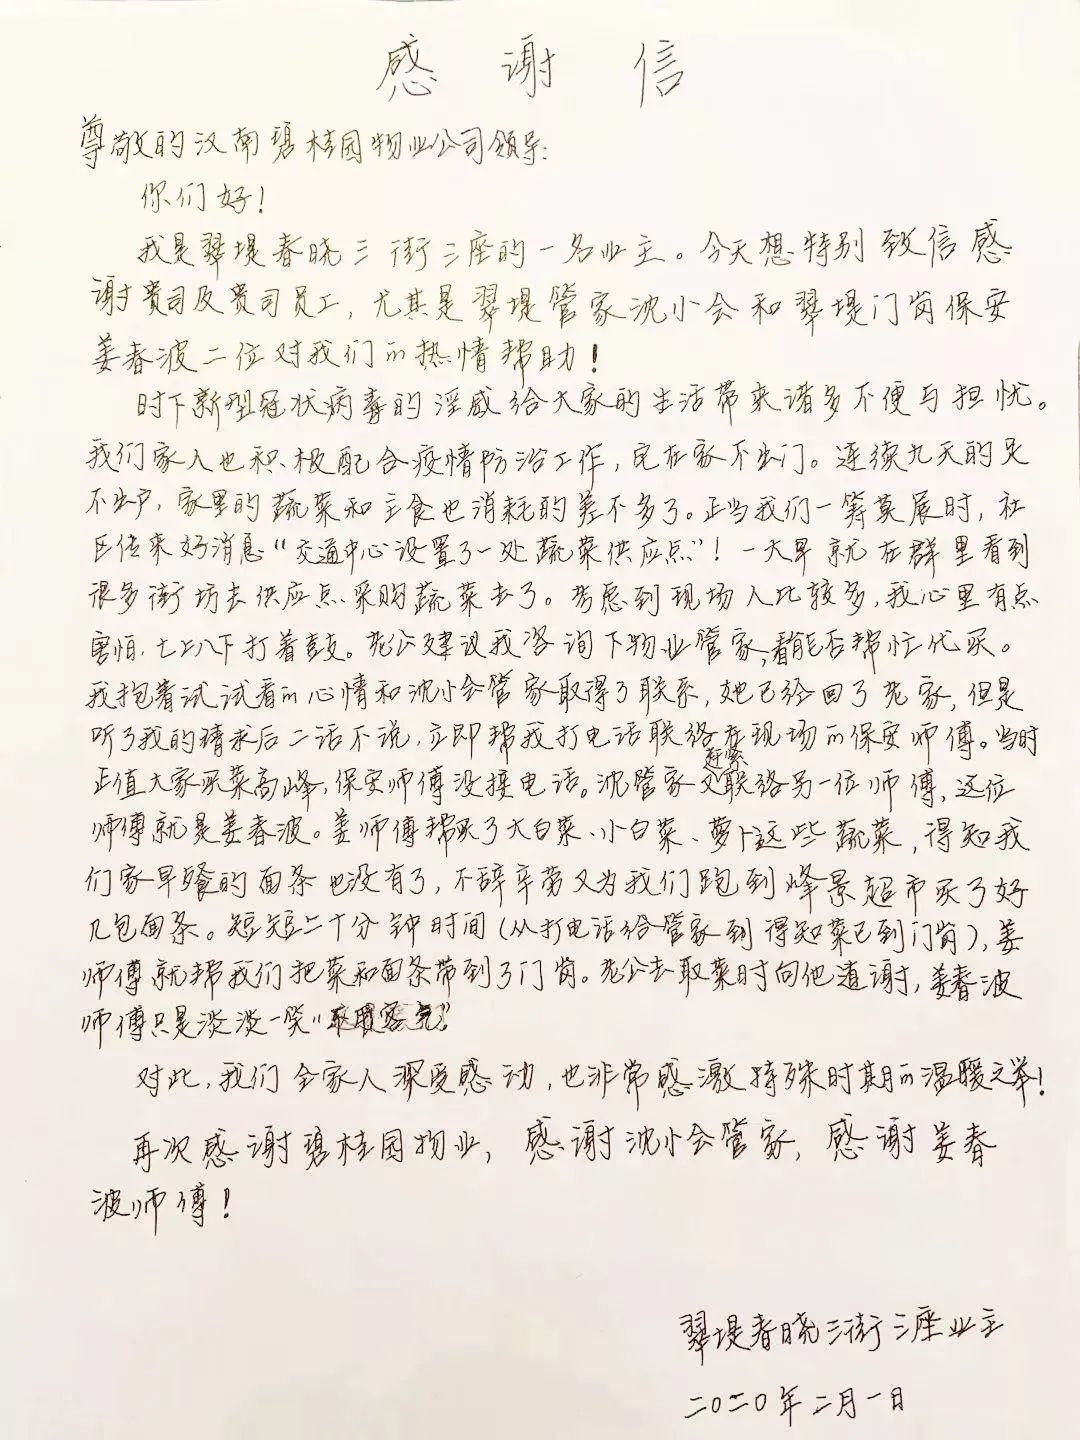 感谢信
尊敬的汉南碧桂园物业公司领导:
你们好!
我是翠堤春晓三街三座的一名业主。今天想特别致信感
谢贵司及贵司员工,尤其是翠堤管家沈小会和翠堤门岗保安
姜春波二位对我们的热情帮助!
时下新型冠状病毒的淫感给大家的生活带来诸多不便与担忧。
我们家人也积极配合疫情防治工作,宅在家不出门。连续九天的足
不出户,家里的蔬菜和主食也消耗的差不多了。正当我们一筹莫展时,社
区传来好消息“交通中心设置了一处蔬菜供应点”!一大早就在群里看到
很多街坊去供应点采购蔬菜去了。考虑到现场人比较多,我心里有点
害怕.七上八下打着鼓。老公建议我咨询下物业管家,看能否帮忙代买。
我抱着试试看的心情和沈小会管家取得了联系,她已经回了老家,但是
听了我的请求后二话不说,立即帮我打电话联络在现场的保安师傅。当时
正值大家买菜高峰,保安师傅没接电话。沈管家又赶紧联络另一位师傅,这位
师傅就是姜春波。姜师傅帮买了大白菜、小白菜、萝卜这些蔬菜,得知我
们家早餐的面条也没有了,不辞辛劳又为我们跑到峰景超市买了好
几包面条。短短二十分钟时间(从打电话给管家到得知菜已到门岗),姜
师傅就帮我们把菜和面条带到了门岗。老公去取菜时向他道谢,姜春波
师傅只是淡淡一笑“不用客气”
对此,我们全家人深受感动,也非常感激特殊时期的温暖之举!
再次感谢碧桂园物业,感谢沈小会管家,感谢姜春
波师傅!
翠堤春晓三街三座业主
二〇二〇年二月一日